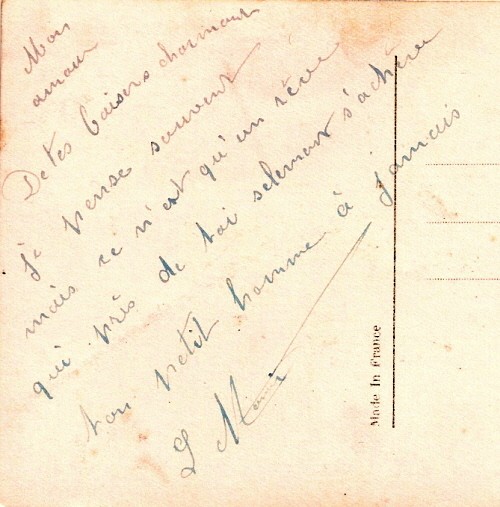 Mon
amour
De tes baisers charmant
je pense souvent
mais ce n'est qu'un rêve
qui près de toi selemant s'achève
ton petit homme à jamais
L
Made In France